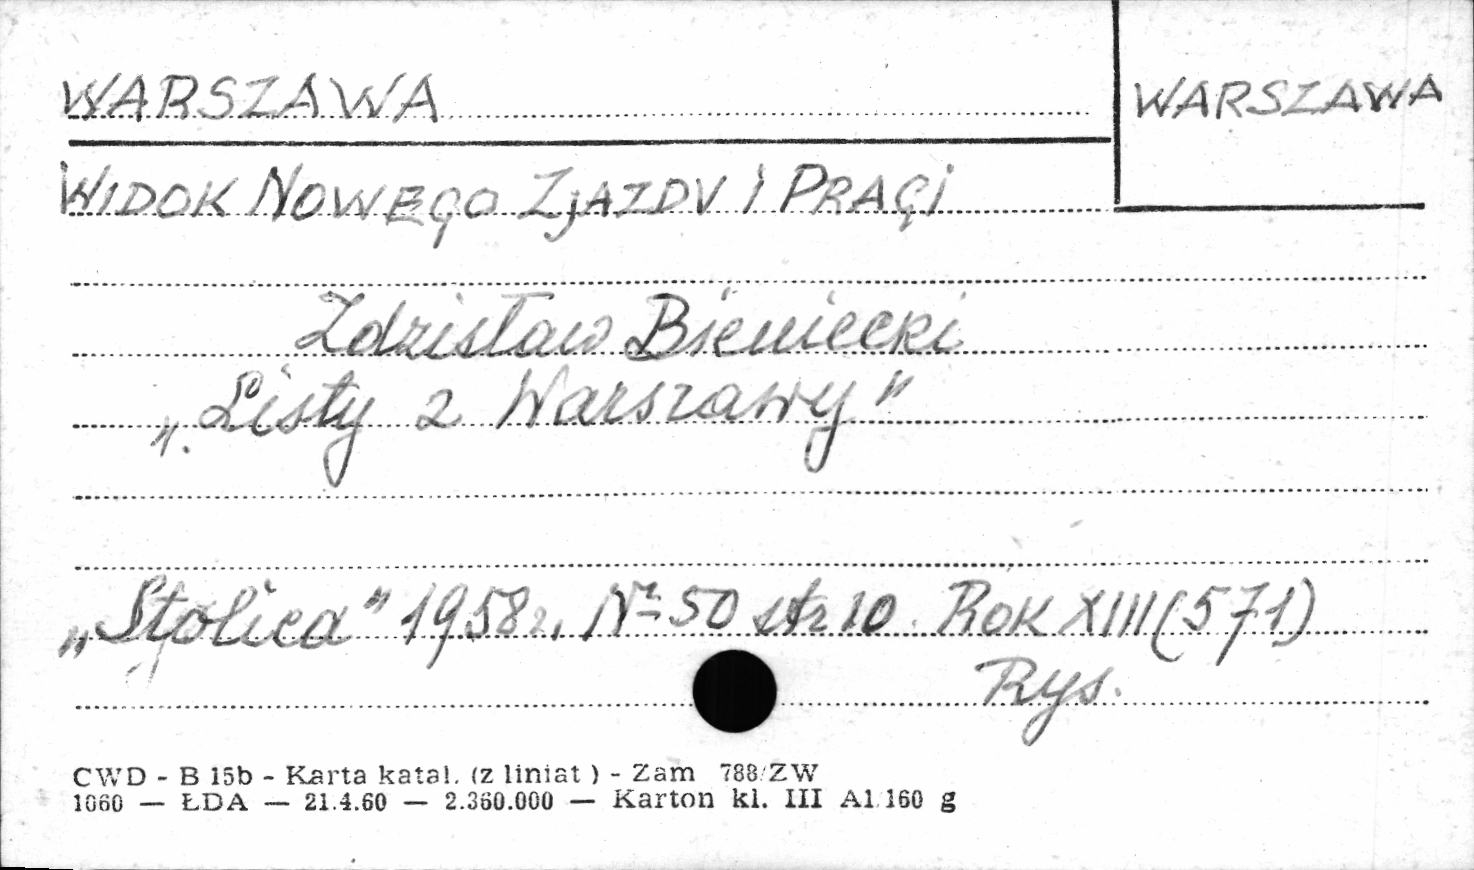 WARSZAWA
WARSZAWA
WIDOK NOWEGO ZJAZDU I PRAGI
Zdzisław Bieniecki
„Listy z Warszawy"
„Stolica" 1958r. Nr 50 str 10. Rok XIII (571)
Rys.
CWD - B 15b - Karta katal. (z liniat) - Zam 788/ZW
1060 — ŁDA — 21.4.60 — 2.360.000 — Karton kl. III A1 160 g